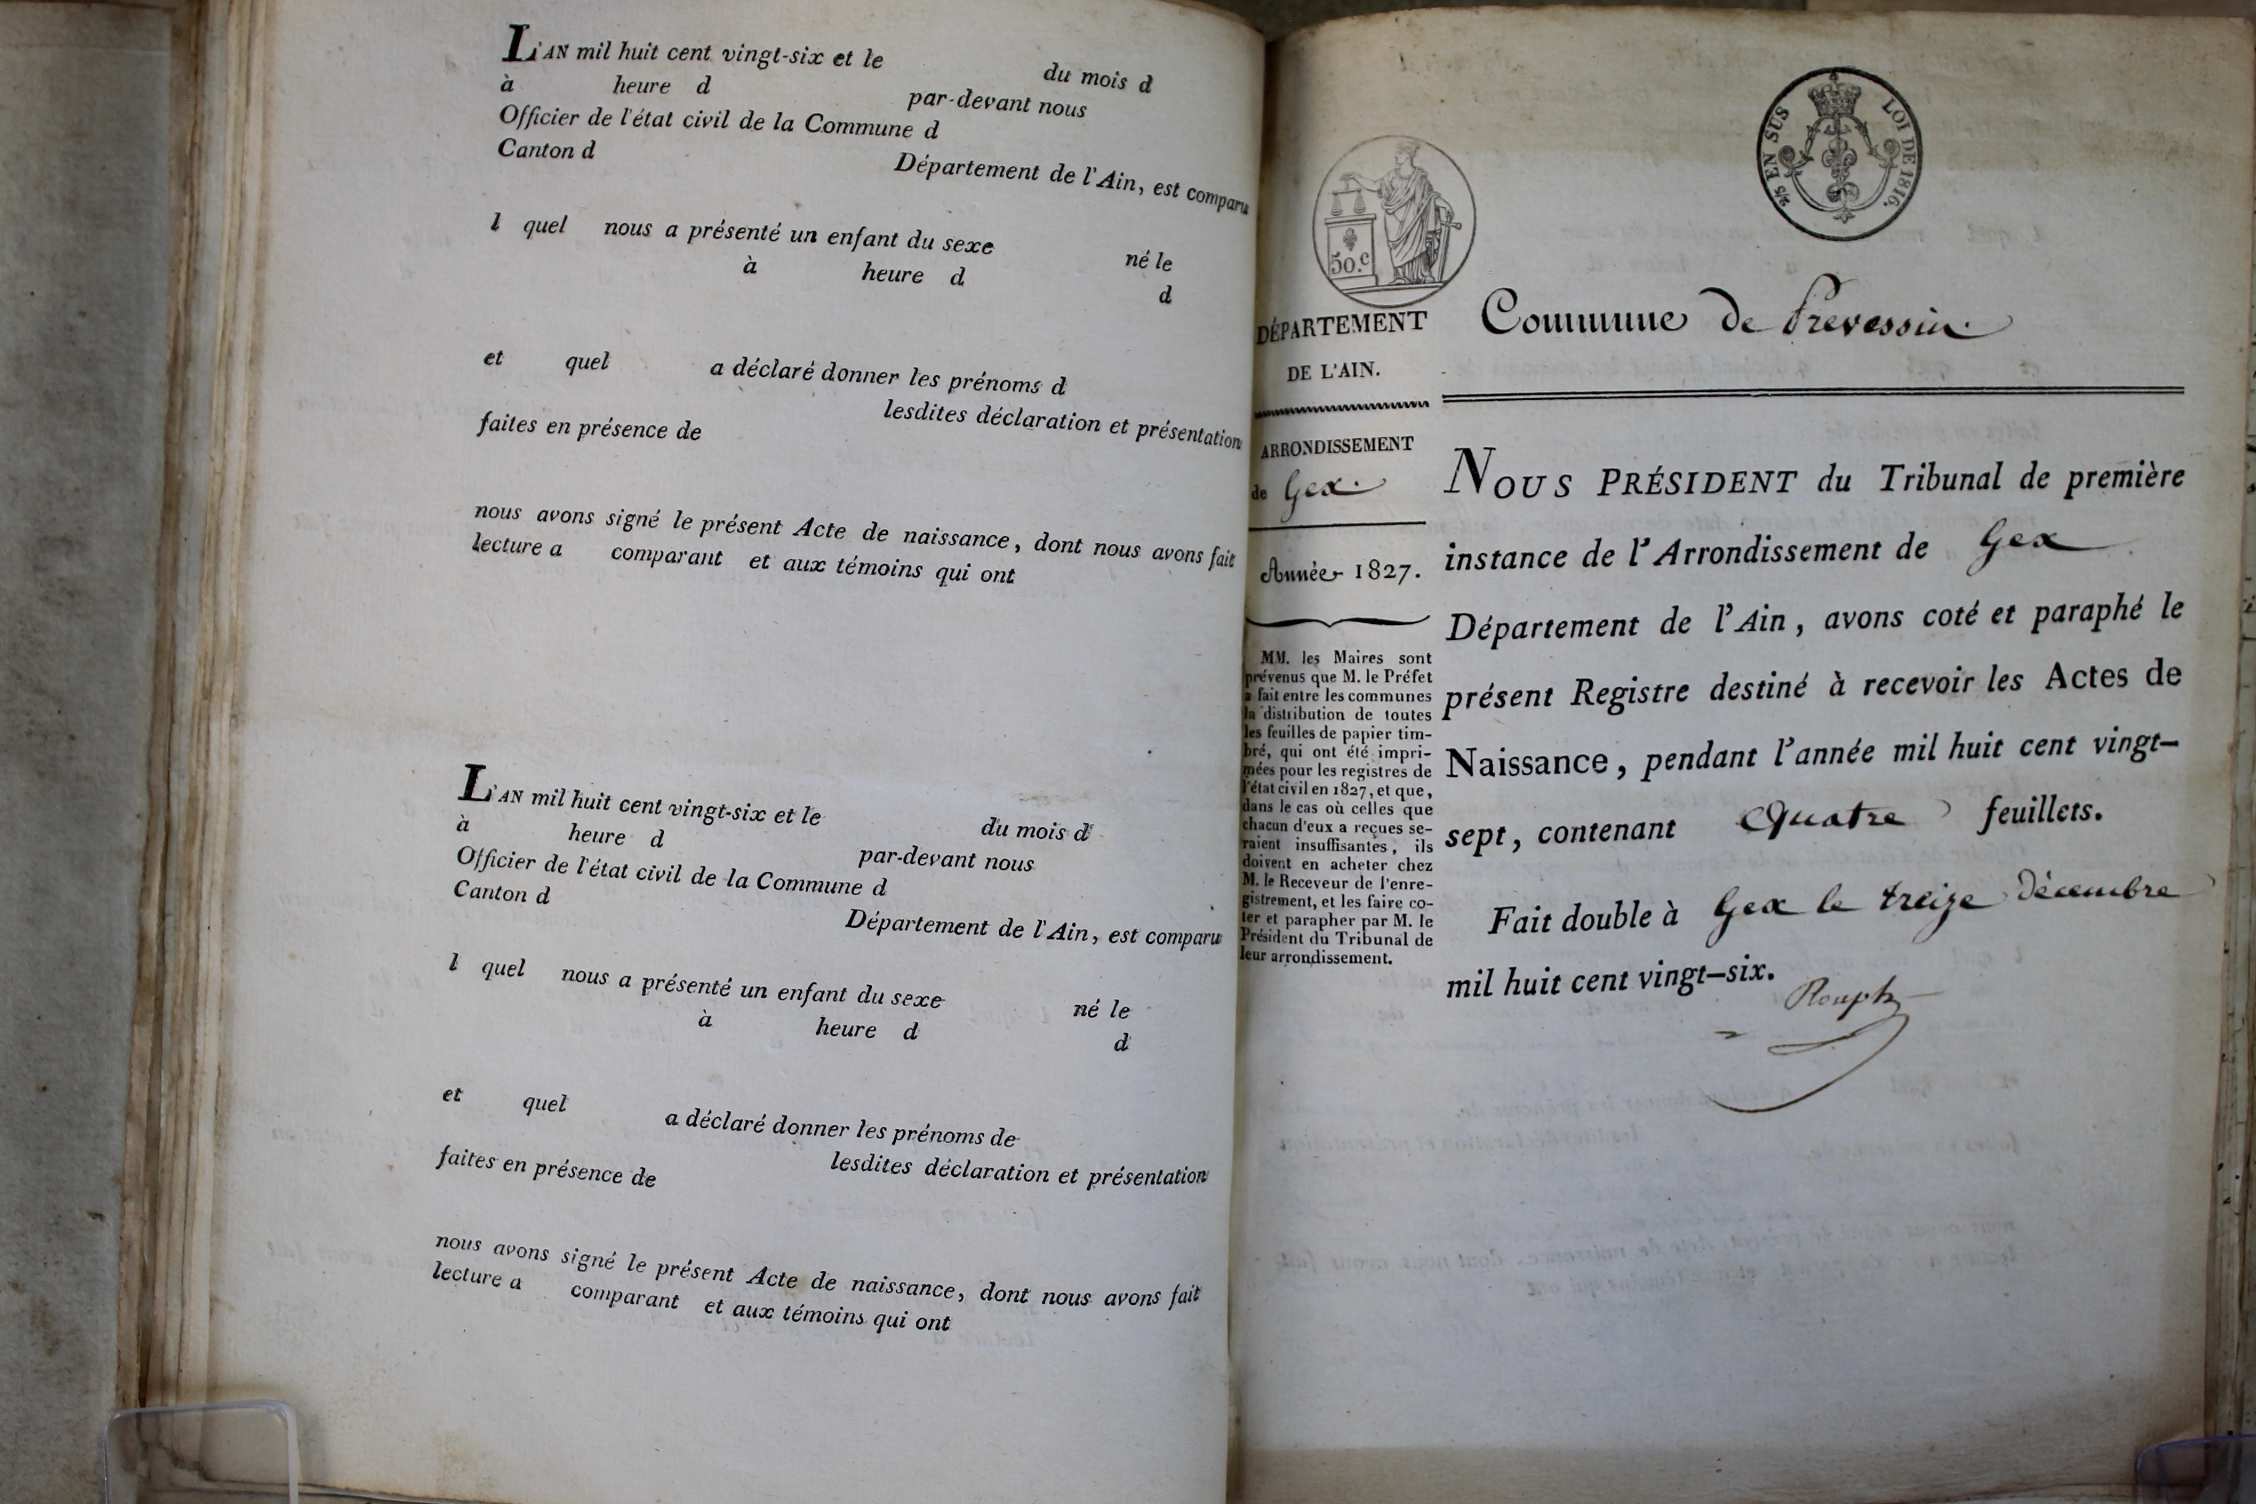 L'AN mil huit cent vingt-six et le du mois d
à heure d par-devant nous
Officier de l'état civil de la Commune d
Canton d Département de l'Ain, est comparu
l quel nous a présenté un enfant du sexe né le
à heure d d
et quel a déclaré donner les prénoms d
lesdites déclaration et présentation
faites en présence de
nous avons signé le présent Acte de naissance, dont nous avons fait
lecture a comparant et aux témoins qui ont
L'AN mil huit cent vingt-six et le du mois d
à heure d par-devant nous
Officier de l'état civil de la Commune d
Canton d Département de l'Ain, est comparu
l quel nous a présenté un enfant du sexe né le
à heure d d
et quel a déclaré donner les prénoms de
lesdites déclaration et présentation
faites en présence de
nous avons signé le présent Acte de naissance, dont nous avons fait
lecture a comparant et aux témoins qui ont
2/5 EN SUS LOI DE 1816.
50.c
DÉPARTEMENT
DE L'AIN.
ARRONDISSEMENT
de Gex.
Année 1827.
MM. les Maires sont
prévenus que M. le Préfet
a fait entre les communes
la distribution de toutes
les feuilles de papier tim-
bré, qui ont été impri-
mées pour les registres de
l'état civil en 1827, et que,
dans le cas où celles que
chacun d'eux a reçues se-
raient insuffisantes, ils
doivent en acheter chez
M. le Receveur de l'enre-
gistrement, et les faire co-
ter et parapher par M. le
Président du Tribunal de
leur arrondissement.
Commune de Prevessin.
NOUS PRÉSIDENT du Tribunal de première
instance de l'Arrondissement de Gex
Département de l'Ain, avons coté et paraphé le
présent Registre destiné à recevoir les Actes de
Naissance, pendant l'année mil huit cent vingt-
sept, contenant Quatre feuillets.
Fait double à Gex le treize Décembre
mil huit cent vingt-six.